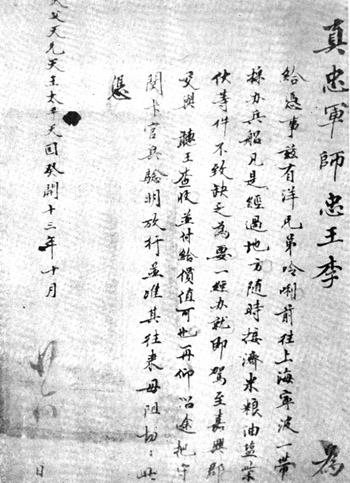 真忠軍師忠王李 為
給憑事茲有洋兄弟呤唎前往上海寧波一帶
採辦兵船凡是經過地方隨時接濟米糧油鹽柴
伙等件不致缺乏為要一經辦就即駕至嘉興郡
交與 聽王查收並付給價值可也再仰沿途把守
関卡官兵驗明放行並准其往來毋阻切〻此
憑
天父天兄天王太平天国癸開十三年十月 日